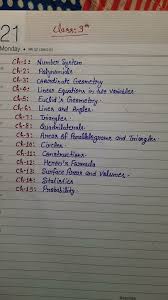 21
Class: 9th
Monday
Ch-1: Number System
Ch-2: Polynomials
Ch-3: Coordinate Geometry
Ch-4: Linear Equations in two variables
Ch-5: Euclid's Geometry
Ch-6: Lines and Angles
Ch-7: Triangles
Ch-8: Quadrilaterals
Ch-9: Areas of Parallelograms and Triangles
Ch-10: Circles
Ch-11: Constructions
Ch-12: Heron's Formula
Ch-13: Surface Areas and Volumes
Ch-14: Statistics
Ch-15: Probability